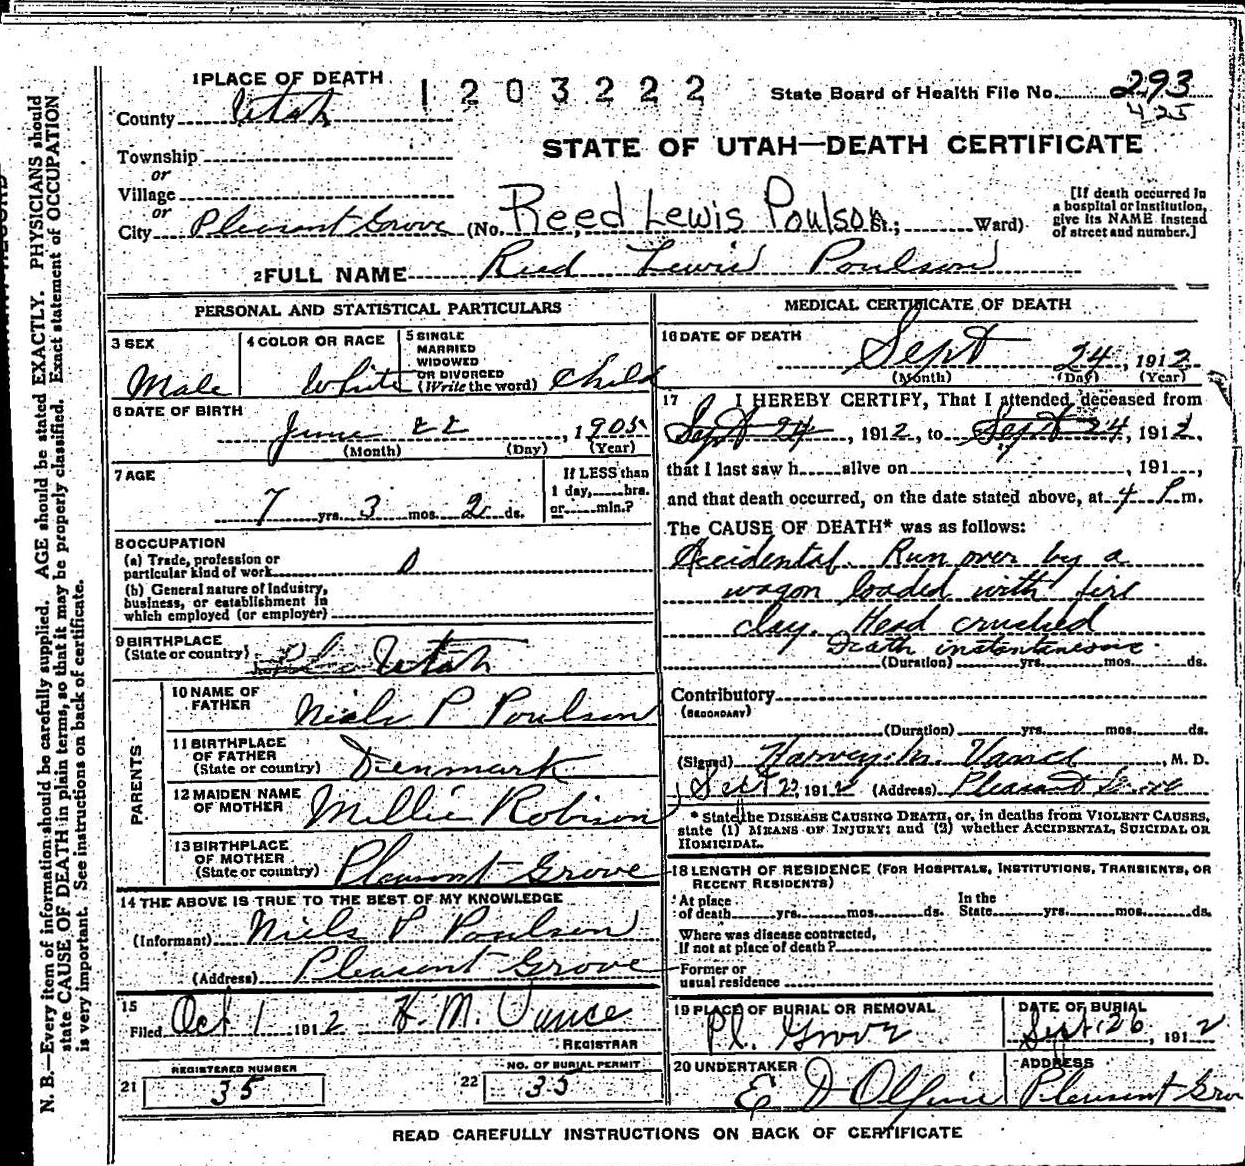 1 PLACE OF DEATH
1203222
State Board of Health File No. 293
425
County Utah
STATE OF UTAH—DEATH CERTIFICATE
Township
or
Village
or
City Pleasant Grove (No. Reed Lewis Poulson St.; Ward)
[If death occurred in
a hospital or institution,
give its NAME instead
of street and number.]
2 FULL NAME Reed Lewis Poulson
PERSONAL AND STATISTICAL PARTICULARS
3 SEX
Male
4 COLOR OR RACE
White
5 SINGLE
MARRIED
WIDOWED
OR DIVORCED
(Write the word) Child
6 DATE OF BIRTH
June 22, 1905
(Month) (Day) (Year)
7 AGE
7 yrs. 3 mos. 2 ds.
If LESS than
1 day, hrs.
or min.?
8 OCCUPATION
(a) Trade, profession or
particular kind of work 0
(b) General nature of industry,
business, or establishment in
which employed (or employer)
9 BIRTHPLACE
(State or country) Utah
PARENTS
10 NAME OF
FATHER Niels P Poulson
11 BIRTHPLACE
OF FATHER
(State or country) Denmark
12 MAIDEN NAME
OF MOTHER Millie Robison
13 BIRTHPLACE
OF MOTHER
(State or country) Pleasant Grove
14 THE ABOVE IS TRUE TO THE BEST OF MY KNOWLEDGE
(Informant) Niels P Poulson
(Address) Pleasant Grove
15
Filed Oct 1 1912 H. M. Vance
REGISTRAR
21 REGISTERED NUMBER
35
22 NO. OF BURIAL PERMIT
35
MEDICAL CERTIFICATE OF DEATH
16 DATE OF DEATH
Sept 24, 1912
(Month) (Day) (Year)
17 I HEREBY CERTIFY, That I attended deceased from
Sept 24, 1912, to Sept 24, 1912,
that I last saw h alive on , 191 ,
and that death occurred, on the date stated above, at 4 P.m.
The CAUSE OF DEATH* was as follows:
Accidental. Run over by a
wagon loaded with fire
clay. Head crushed
Death instantaneous.
(Duration) yrs. mos. ds.
Contributory
(SECONDARY)
(Duration) yrs. mos. ds.
(Signed) Vance, M. D.
Sept 1912 (Address) Pleasant Grove
* State the DISEASE CAUSING DEATH, or, in deaths from VIOLENT CAUSES,
state (1) MEANS OF INJURY; and (2) whether ACCIDENTAL, SUICIDAL OR
HOMICIDAL.
18 LENGTH OF RESIDENCE (FOR HOSPITALS, INSTITUTIONS, TRANSIENTS, OR
RECENT RESIDENTS)
At place
of death yrs. mos. ds.
In the
State yrs. mos. ds.
Where was disease contracted,
If not at place of death?
Former or
usual residence
19 PLACE OF BURIAL OR REMOVAL
Pl. Grove
DATE OF BURIAL
Sept. 26, 1912
20 UNDERTAKER
E D Olpin
ADDRESS
Pleasant Grov
READ CAREFULLY INSTRUCTIONS ON BACK OF CERTIFICATE
N. B.—Every item of information should be carefully supplied. AGE should be stated EXACTLY. PHYSICIANS should
state CAUSE OF DEATH in plain terms, so that it may be properly classified. Exact statement of OCCUPATION
is very important. See instructions on back of certificate.